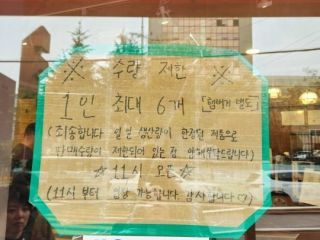 ※ 수량 제한 ※
1인 최대 6개 [햄버거 별도]
(죄송합니다 일일 생산량이 한정된 제품으로
판매수량이 제한되어 있는점 양해부탁드립니다)
☆ 11시 오픈 ☆
(11시 부터 입장 가능합니다 감사합니다♡)